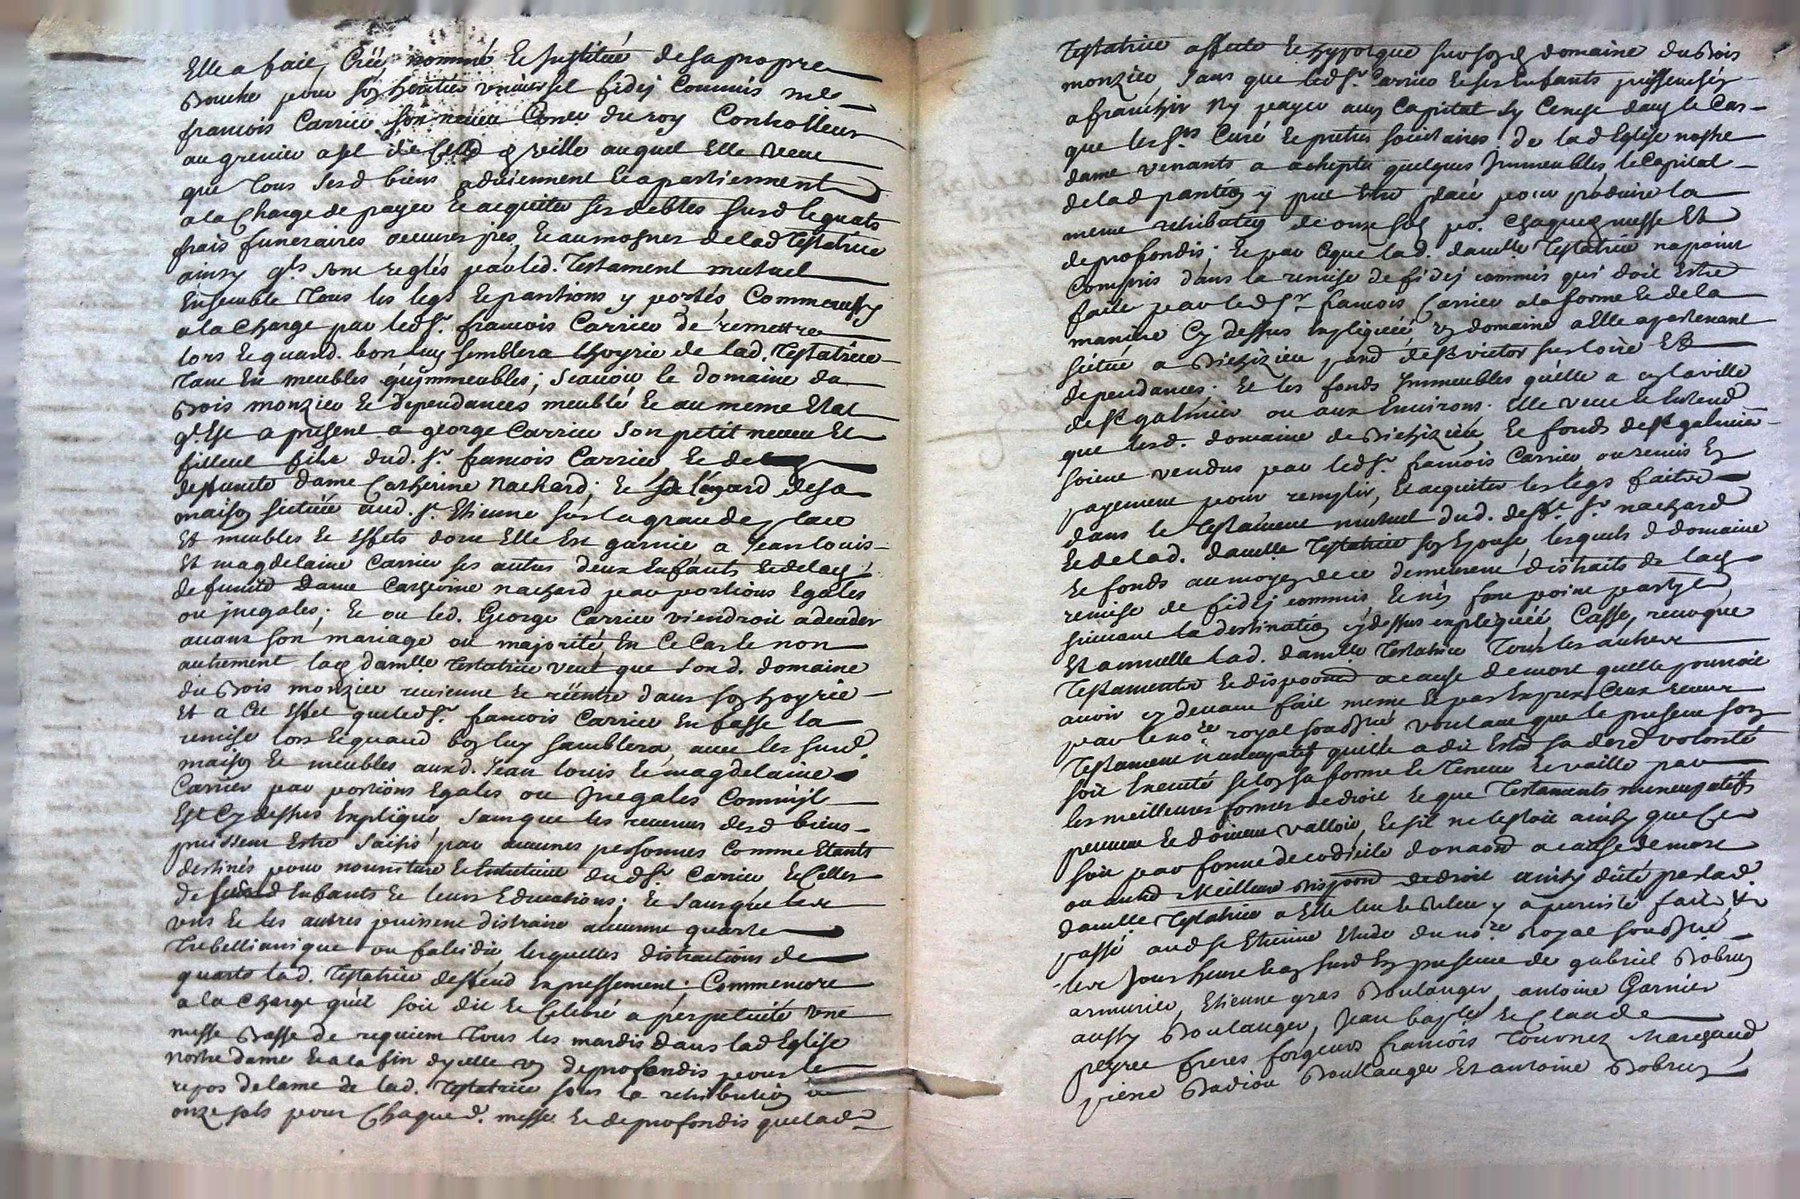 Elle a fait, Créé nommé et Institué de sa propre
Bouche pour son heritier universel fidei Commis mre
francois Carrier son neveu Coner du roy Controlleur
au grenier a sel de ville auquel Elle veut
que tous sesd biens adviennent et apartiennent
a la Charge de payer et acquiter ses debtes susd leguats
frais funeraires oeuvres pies, et aumosnes de lad Testatrice
ainsy qls sont reglés par led. Testament mutuel
Ensemble tous les legs et pantions y portés Comme aussy
a la Charge par led sr. francois Carrier de remettre
lors et quand. bon luy semblera lhoyrie de lad. Testatrice
tant En meubles qu'jmmeubles; scavoir le domaine du
Bois monzieu et dependances meublé et au meme Etat
ql Est a present a george Carrier son petit neveu Et
filleul fils dud. sr. francois Carrier et de
deffuncte dame Catherine nachard; et a legard de sa
maison scituée aud. st. Etienne sur la grande place
Et meubles et Effets dont Elle Est garnie a Jean louis
Et magdelaine Carrier ses autres deux Enfants et de lad
defuncte dame Catherine nachard par portions Egales
ou jnegales; Et ou led. George Carrier viendroit a deceder
avant son mariage ou majorité, En Ce Cas et non
autrement lad damlle testatrice veut que sond. domaine
du Bois monzieu revienne et rentre dans son hoyrie
Et a Cet Effet que led sr. francois Carrier En fasse la
remise lors et quand bon luy semblera avec les susd
maison et meubles auxd. Jean louis et magdelaine
Carrier par portions Egales ou Jnegales Comm'jl
Est Cy dessus Expliqué sans que les revenus desd biens
puissent Estre saisis par aucunes personnes Comme Etants
destinés pour nourriture et Entretient dud sr Carrier et Celles
de sesd Enfants et leurs Educations; et sans que les
uns et les autres puissent distraire aucunne quarte
Trebellianique ou falcidie lesquelles distractions de
quarts lad. Testatrice deffend Expressement. Comm'encore
a la Charge qu'il soit dit et Celebré a perpetuité une
messe Basse de requiem tous les mardis dans lad Eglise
nostre dame et a la fin d'ycelle un deprofondis pour le
repos de lame de lad. Testatrice sous la retribution de
onze sols pour Chaque d. messe et deprofondis que lad
Testatrice affecte et hypoteque sur son d domaine du Bois
monzieu sans que led sr. Carrier et ses Enfants puissent sen
afranchir ny payer aucun Capital sy Ce n'est dans le Cas
que les srs Curé et pretres societaires de lad Eglise nostre
dame venants a achepter quelques Jmmeubles, le Capital
de lad pantion y put Etre placé pour produire la
meme retribution de onze sols pr. Chaque messe Et
deprofondis; Et par Ceque lad. damlle Testatrice na point
Compris dans la remise de fidei commis qui doit Estre
faite par led sr francois Carrier a la forme et de la
maniere Cy dessus Expliquée un domaine a Elle apartenant
scitué a pard de st victor sur loire Et
dependances. Et les fonds Jmmeubles quelle a en la ville
de st galmier ou aux Environs. Elle veut et Entend
que lesd. domaine de et fonds de st galmier
soient vendus par led sr. francois Carrier ou remis En
payement pour remplir, Et acquiter les legs faits
dans le Testament mutuel dud. defft sr. nachard
Et de lad. damlle Testatrice son Epouse lesquels d domaine
Et fonds au moyen de ce demeurent distraits de lad
remise de fidei commis Et n'en font point partye
suivant la destination Cy dessus expliquée, Casse, revoque
Et annulle lad. damlle Testatrice tous les autres
Testaments Et dispoons a cause de mort quelle pourroit
avoir Cy devant fait meme et par Exprex Ceux receus
par le nore royal soussigné voulant que le present son
Testament nuncupatif quelle a dit Estre sa dere volonté
soit Executé selon sa forme Et teneur Et vaille par
les meilleures formes de droit Et que Testaments nuncupatifs
peuvent Et doivent valloir, Et sil ne lestoit ainsy que Ce
soit par forme de codicile donaon a cause de mort
ou autre Meilleure dispoon de droit ainsy dicté par lad
damlle Testatrice a Elle leu Et releu y a persisté fait Et
passé aud st Etienne Etude du nore Royal soussigné
les Jour heure Et an susd En presence de gabriel Bobrun
armurier, Etienne gras Boulanger, antoine Garnier
aussy Boulanger, Jean bayle Et Claude
peyret freres forgeurs francois Tournez Marchand
piere Badiou Boulanger Et antoine Bobrun